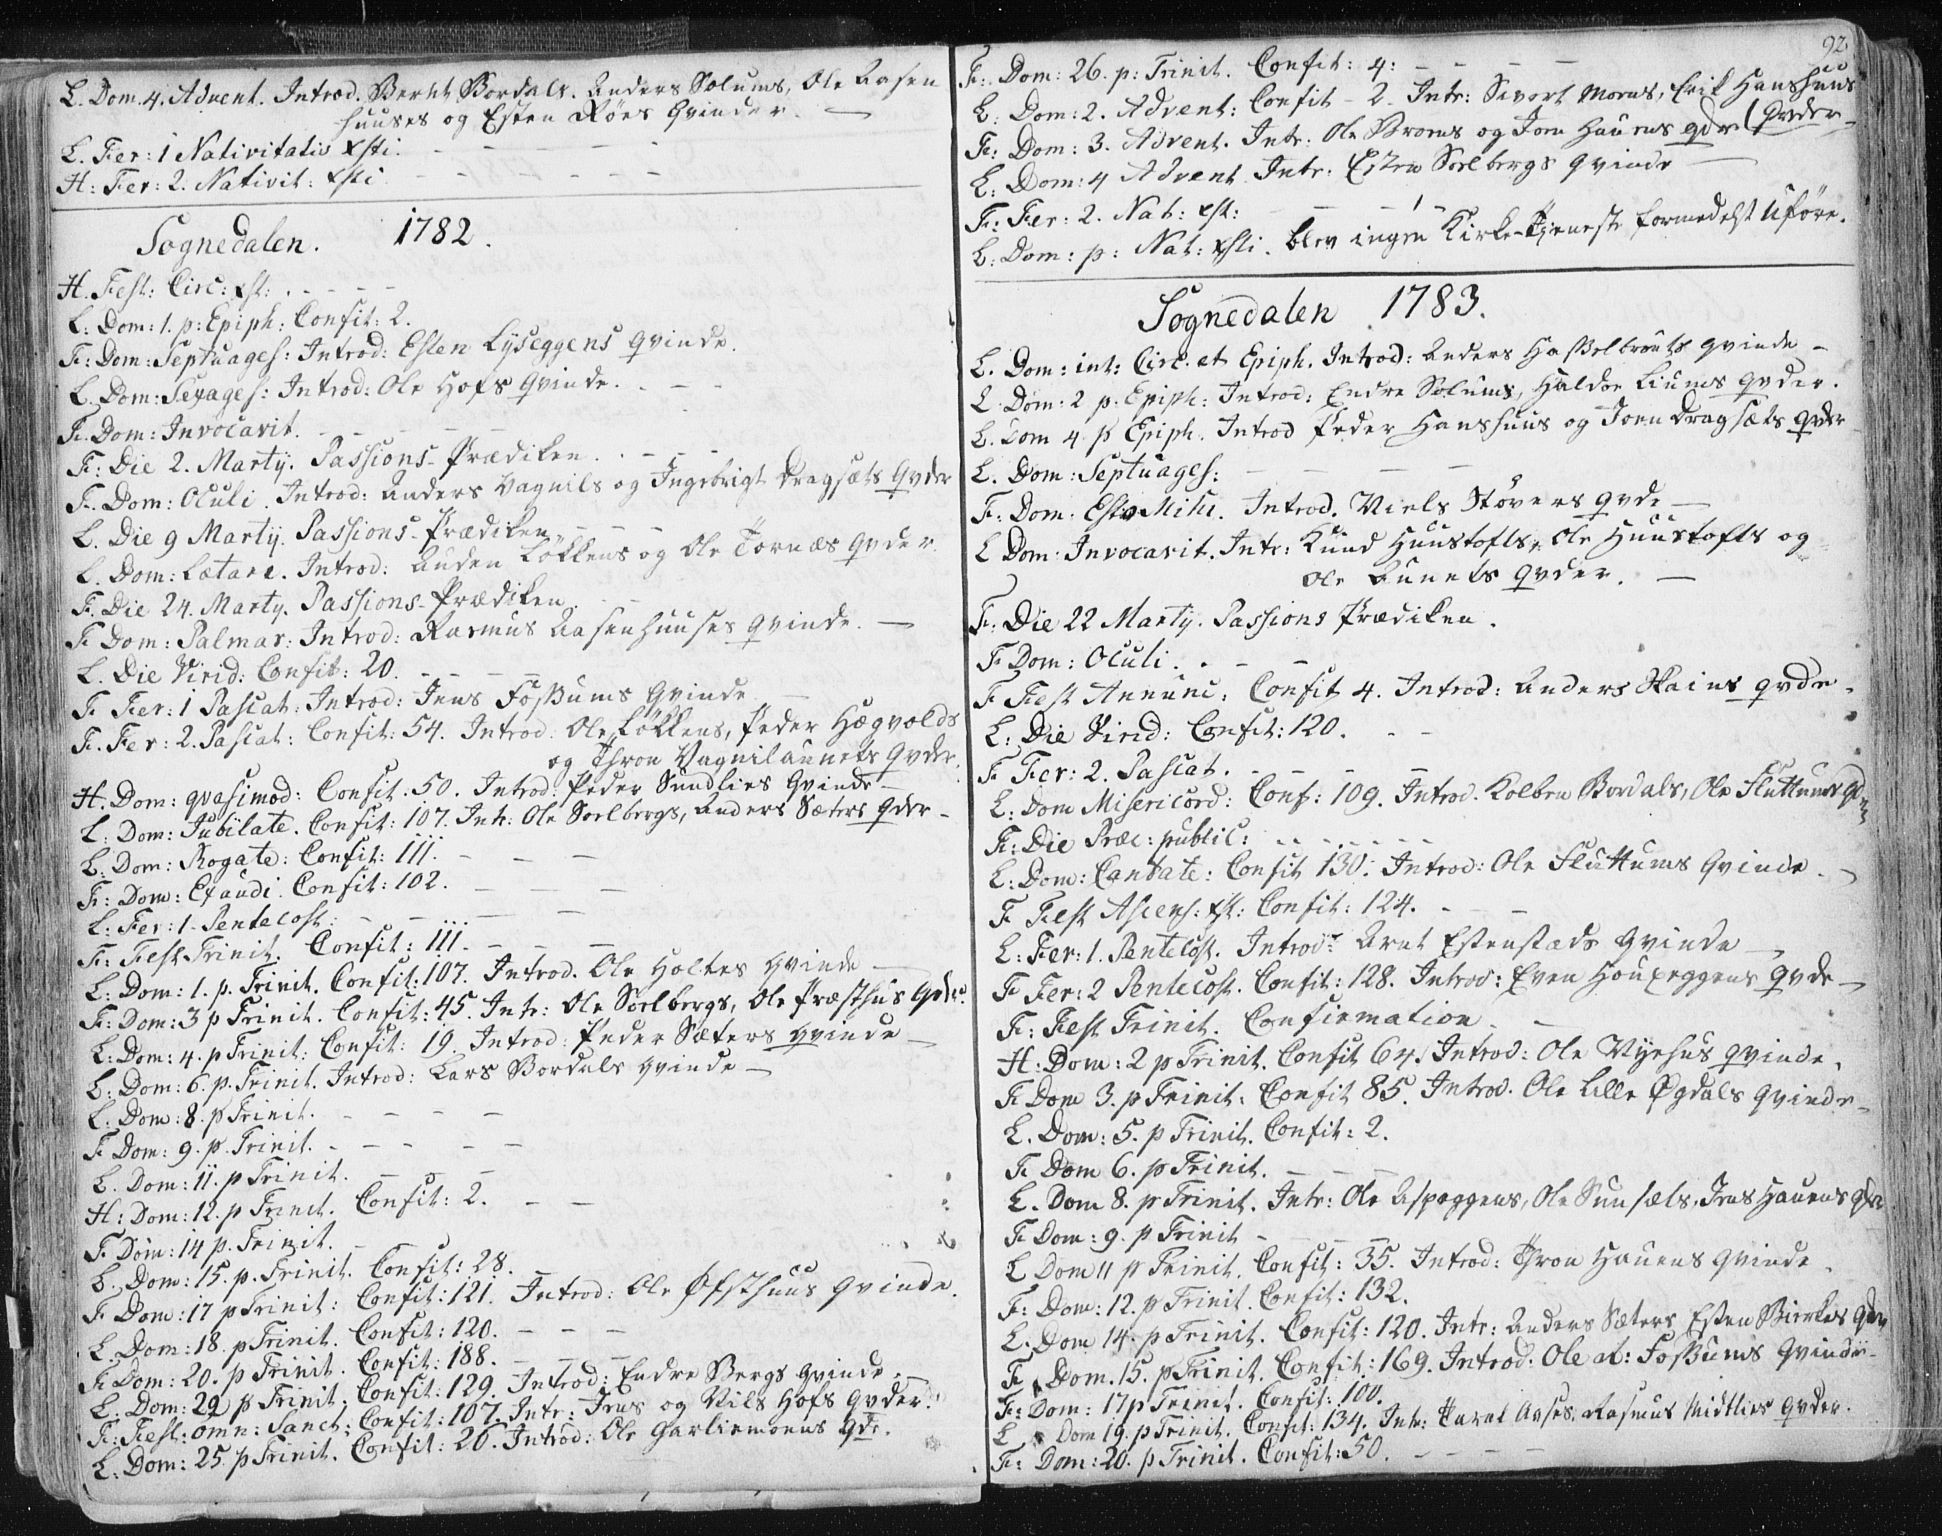 L. Dom. 4. Advent. Introd. Bernt Bordals. Anders Solums, Ole Aasen
huuses og Esten Röes Qvinder. —
L. Fer: 1 Nativitatis Xsti. - - - - -
H: Fer: 2. Nativit: Xsti - - - - - -
Sognedalen. 1782.
H. Fest: Circ: Xst: . - - - -
L: Dom: 1. p: Epiph: Confit: 2.
F: Dom: Septuages: Introd: Esten Lyseggens Qvinde.
L. Dom: Sexages: Introd: Ole Hofs Qvinde. - - -
F. Dom: Invocavit. - - - -
F: Die 2. Martÿ. Passions-Prædiken. . - - -
F. Dom: Oculi. Introd: Anders Vagnils og Ingebrigt Dragsæts Qvder
L. Die 9 Martÿ. Passions-Prædiken. - - -
L. Dom: Lætare. Introd: Auden Løkkens og Ole Tornæs Qvder.
F. Die 24. Martÿ. Passions-Prædiken. - -
F Dom: Palmar: Introd: Rasmus Aasenhuuses Qvinde. —
L. Die Virid: Confit: 20. - - - -
F Fer: 1 Pascat: Introd: Jens Foßums Qvinde —
F. Fer: 2. Pascat: Confit: 54. Introd: Ole Løkkens, Peder Hægvolds
og Thron Vagnilaunets Qvder.
H. Dom: qvasimod: Confit. 50. Introd: Peder Sundlies Qvinde —
L: Dom: Jubilate. Confit: 107. Int: Ole Soelbergs, Anders Sæters Qder -
L. Dom: Rogate: Confit: 111. - - -
F: Dom: Exaudi. Confit: 102. - - -
L: Fer: 1. Pentecost: - - - -
F: Fest Trinit. Confit: 111. - - -
L: Dom: 1. p. Trinit. Confit: 107. Introd. Ole Holtes Qvinde —
F: Dom: 3 p Trinit. Confit: 45. Intr: Ole Soelbergs, Ole Præsthus Qvder.
L: Dom: 4. p Trinit: Confit: 19. Introd: Peder Sæters Qvinde —
L: Dom: 6. p. Trinit. Introd: Lars Bordals Qvinde —
L: Dom: 8. p Trinit. - - - -
F Dom: 9. p. Trinit. - - - - -
L. Dom: 11. p Trinit. - - - -
H: Dom: 12. p Trinit. Confit: 2. - -
F Dom: 14 p. Trinit. - -
L. Dom: 15. p. Trinit. Confit: 28.
F Dom: 17 p Trinit: Confit: 121. Introd: Ole Øfsthuus Qvinde.
L. Dom: 18. p Trinit. Confit: 120. - - -
F Dom: 20. p Trinit. Confit: 188. - - -
L. Dom: 22 p Trinit. Confit: 129. Introd: Endre Bergs Qvinde. -
F: Fest: omn: Sanct: Confit: 107. Intr: Jens og Nils Hofs Qvder.
L: Dom: 25. p Trinit. Confit: 26. Introd: Ole Garliemoens Qde.
92.
F: Dom: 26. p: Trinit. Confit: 4: - - - -
L: Dom: 2. Advent: Confit - 2. Intr: Sivort Moens, Erik Hanshuus
F: Dom: 3. Advent. Intr: Ole Broens og Joen Hauens qdr ( Qvder -
L: Dom: 4 Advent Intr: Esten Soelbergs Qvinde —
F: Fer: 2. Nat: Xst: - - - -
L: Dom: p: Nat: Xsti. blev ingen Kirke-Tjeneste formedelst Uføre.
Sognedalen 1783.
L. Dom: int: Circ. et Epiph. Introd: Anders Haßelbrouts Qvinde -
L Dom: 2 p. Epiph: Introd: Endre Solums, Haldor Liums Qvder.
L. Dom 4 p Epiph. Introd Peder Hanshuus og Joen Dragsæts Qvdr
L. Dom: Septuages: - - - -
F: Dom. Esto Mihi. Introd. Niels Støvers Qvde —
L Dom: Invocavit. Intr: Knud Huustofts, Ole Huustofts og
Ole Aunets Qvder. —
F: Die 22 Martÿ. Passions Prædiken.
F Dom: Oculi. . - -
F Fest Annunc: Confit 4. Introd: Anders Hains Qvde.
L: Die Virid: Confit: 120. - -
F Fer: 2. Pascat. - - - - -
L: Dom Misericord: Conf: 109. Introd. Kolben Bordals, Ole Fluttums Qder
F: Die Præc: public: - - - - - -
L: Dom: Cantate: Confit 130. Introd: Ole Fluttums Qvinde. —
F Fest Ascens: Xst: Confit: 124. - -
L: Fer: 1. Pentecost. Introd: Arnt Estenstads Qvinde —
F Fer: 2 Pentecost. Confit: 128. Introd: Even Houxeggens Qvde —
F: Fest Trinit. Confirmation - -
H: Dom: 2 p Trinit. Confit 64. Introd: Ole Nÿehus Qvinde.
F Dom 3. p Trinit: Confit 85. Introd. Ole Lille Øgdals Qvinde.
L. Dom: 5. p Trinit. Confit: 2.
F Dom 6. p Trinit. - - -
L. Dom 8. p Trinit. Intr: Ole Aspeggens, Ole Sunsæts, Jens Hauens Qdr
F Dom: 9. p Trinit - - - -
L Dom 11 p Trinit. Confit: 35. Introd: Thron Hauens Qvinde.
F: Dom: 12. p Trinit. Confit: 132.
L. Dom 14. p Trinit. Confit: 120. Intr: Anders Sæters Esten Bierkes Qder
F Dom. 15. p Trinit. Confit: 169. Introd: Ole at: Foßums Qvinde -
F: Dom: 17 p Trinit. Confit: 100.
L Dom 19. p Trinit. Confit: 134. Intr: Aases, Rasmus Midtlies Qvder.
F: Dom: 20. p Trinit. Confit: 50. - - - -